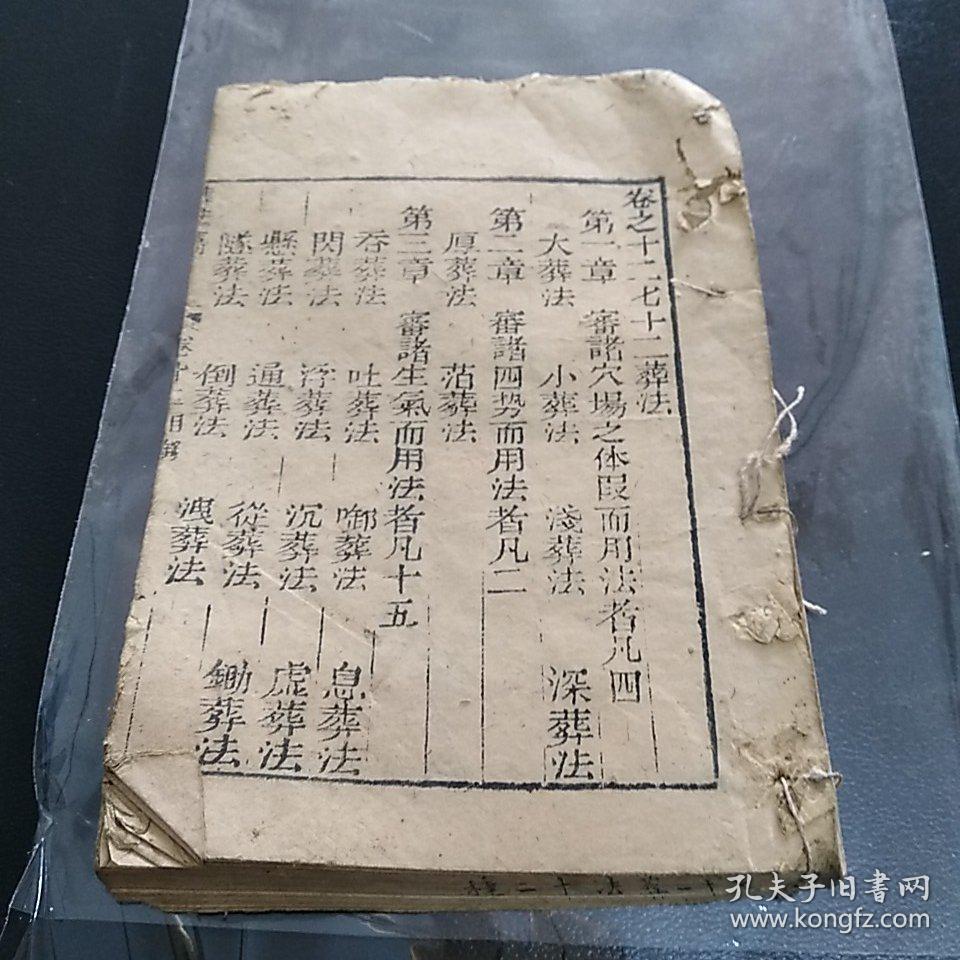 卷之十二七十二葬法
第一章 審諸穴場之体段而用法者凡四
大葬法 小葬法 淺葬法 深葬法
第二章 審諸四势而用法者凡二
厚葬法 沾葬法
第三章 審諸生氣而用法者凡十五
吞葬法 吐葬法 啣葬法 息葬法
閃葬法 浮葬法 沉葬法 虛葬法
懸葬法 逼葬法 從葬法 鋤葬法
倒葬法 洩葬法
卷十二目錄
孔夫子旧書网
www.kongfz.com